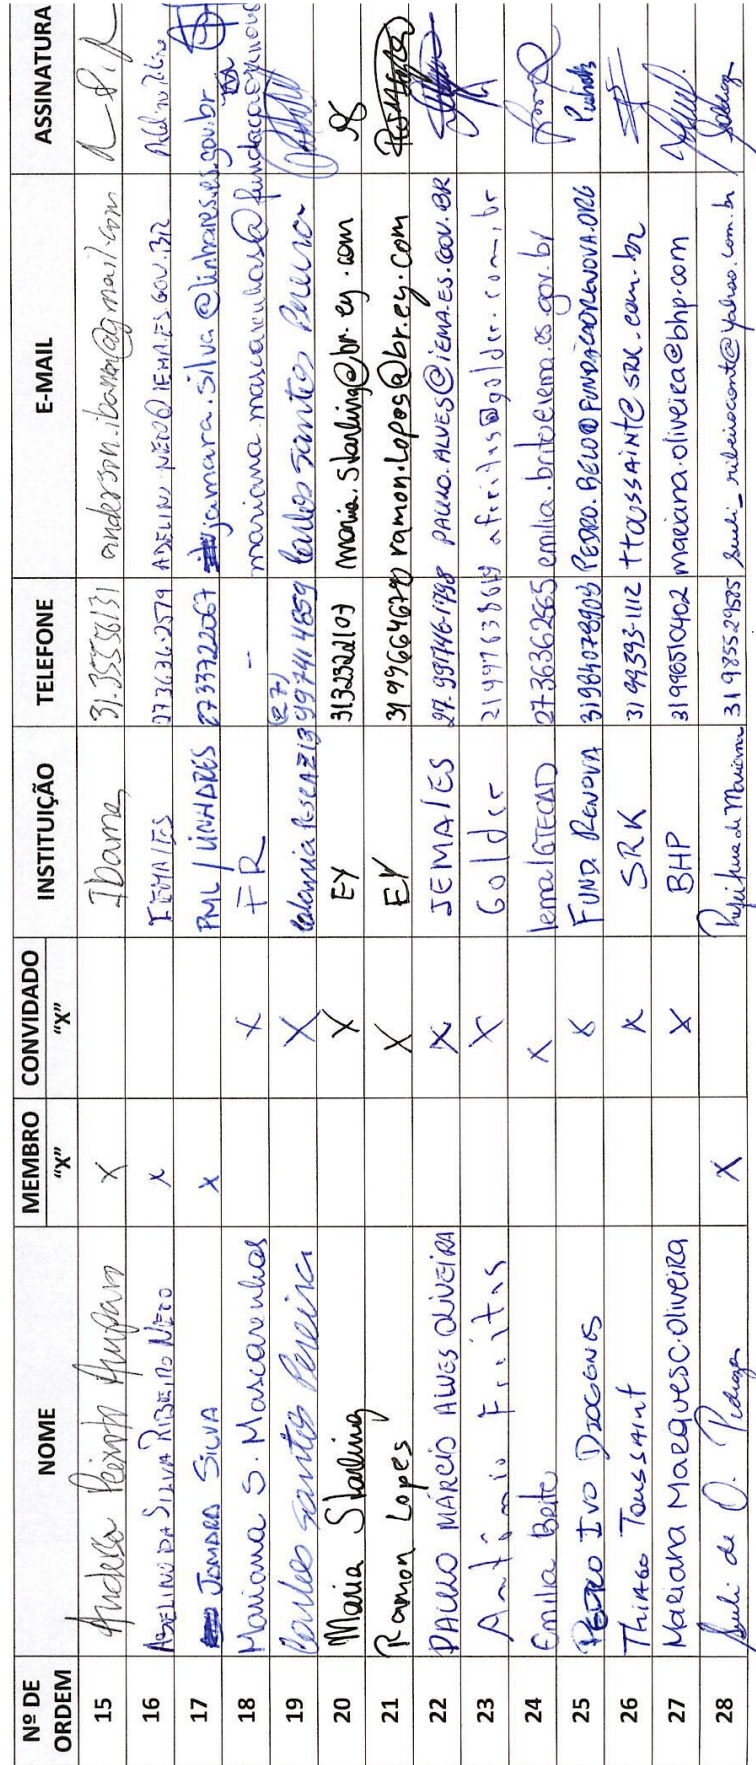 Nº DE ORDEM NOME MEMBRO "X" CONVIDADO "X" INSTITUIÇÃO TELEFONE E-MAIL ASSINATURA
15 Anderson Peixoto Amparo X Ibama 31.35556131 anderson.ibama@gmail.com
16 ADELINO DA SILVA RIBEIRO NETO X IEMA/ES 273636.2579 ADELINO.NETO@IEMA.ES.GOV.BR
17 JAMARA SILVA X PML / LINHARES 2733722067 jamara.silva@linhares.es.gov.br
18 Mariana S. Mascarenhas X FR - mariana.mascarenhas@fundacaorenova
19 Carlos Santos Pereira X Colonia Pesca Z13 (27) 997414859 Carlos Santos Pereira
20 Maria Starling X EY 3132322107 maria.starling@br.ey.com
21 Ramon Lopes X EY 31996646790 ramon.lopes@br.ey.com
22 PAULO MÁRCIO ALVES OLIVEIRA X IEMA/ES 27.99746-1798 PAULO.ALVES@IEMA.ES.GOV.BR
23 Antônio Freitas X Golder 21997638619 afreitas@golder.com.br
24 Emilia Brito X Iema/GTECAD 2736362265 emilia.brito@iema.es.gov.br
25 PEDRO IVO DIOGENES X FUND. RENOVA PEDRO.BELO@FUNDACAORENOVA.ORG
26 THIAGO TOUSSAINT X SRK 31 99393-1112 ttoussaint@srk.com.br
27 MARIANA MARQUES C. OLIVEIRA X BHP 31996510402 mariana.oliveira@bhp.com
28 Sueli de O. Pedrosa X Prefeitura de Mariana 31 9855.29585 sueli_ribeirocont@yahoo.com.br